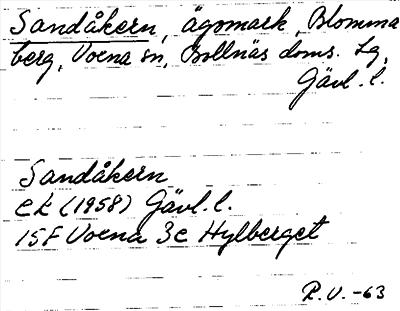 Sandåkern, ägomark, Blomma
berg, Voxna sn, Bollnäs doms. lg,
Gävl. l.
Sandåkern
ek (1958) Gävl. l.
15F Voxna 3c Hylberget
R.V. -63